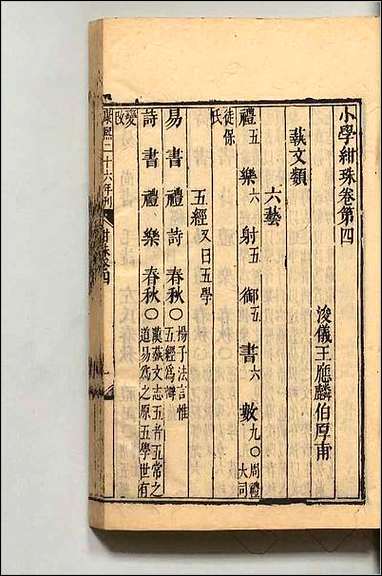 小學紺珠卷第四
浚儀王應麟伯厚甫
藝文類
六藝
禮五樂六射五御五書六數九〇周禮大司
徒保氏
五經又曰五學
易書禮詩春秋〇揚子法言惟五經為辯
詩書禮樂春秋〇漢藝文志五者五常之道易為之原五學世有
變改
康熙二十六年刊 紺珠卷四